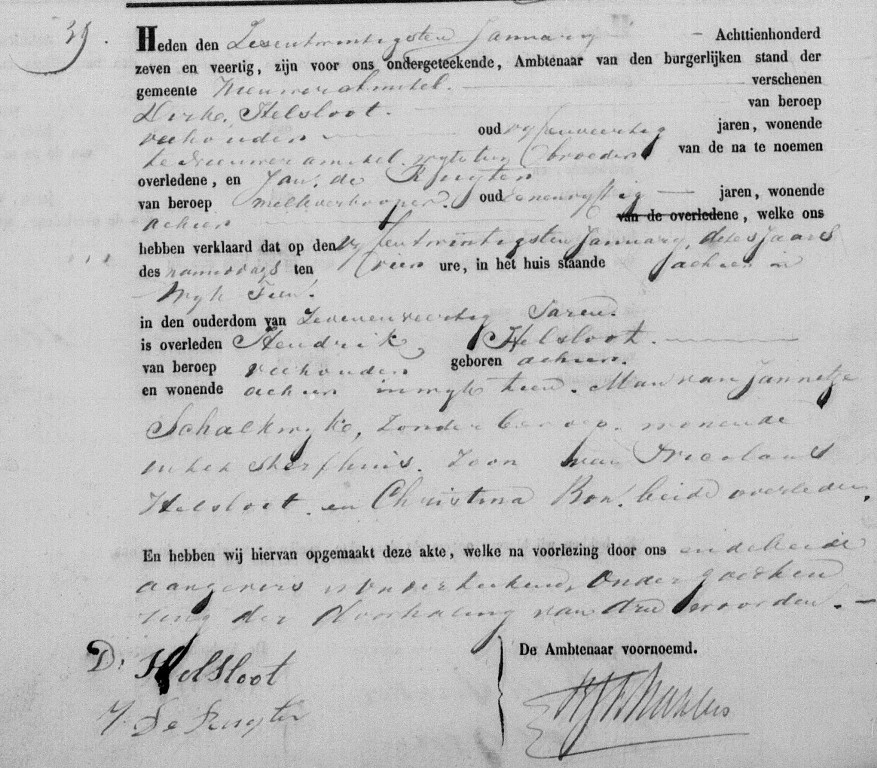 39.
Heden den Zesentwintigsten January – Achttienhonderd
zeven en veertig, zijn voor ons ondergeteekende, Ambtenaar van den burgerlijken stand der
gemeente Nieuweramstel. verschenen
Dirk Helsloot. van beroep
veehouder oud vyfenveertig jaren, wonende
te Nieuweramstel. wyk tien broeder van de na te noemen
overledene, en Jan de Ruyter
van beroep melkverkooper. oud eenenvyftig jaren, wonende
alhier van de overledene, welke ons
hebben verklaard dat op den vyfentwintigsten January, dezes Jaars
des namiddags ten vier ure, in het huis staande alhier in
Wyk Tien.
in den ouderdom van Zevenenveertig Jaren.
is overleden Hendrik Helsloot.
van beroep veehouder geboren alhier.
en wonende alhier in wyk tien. Man van Jannetje
Schalkwyk, Zonder beroep. wonende
in het sterfhuis. Zoon van Nicolaas
Helsloot. en Christina Bon. beide overleden.
En hebben wij hiervan opgemaakt deze akte, welke na voorlezing door ons en de beide
aangevers is onderteekend, onder goedkeu
ring der doorhaling van drie woorden. –
D: Helsloot
J. De Ruyter
De Ambtenaar voornoemd.